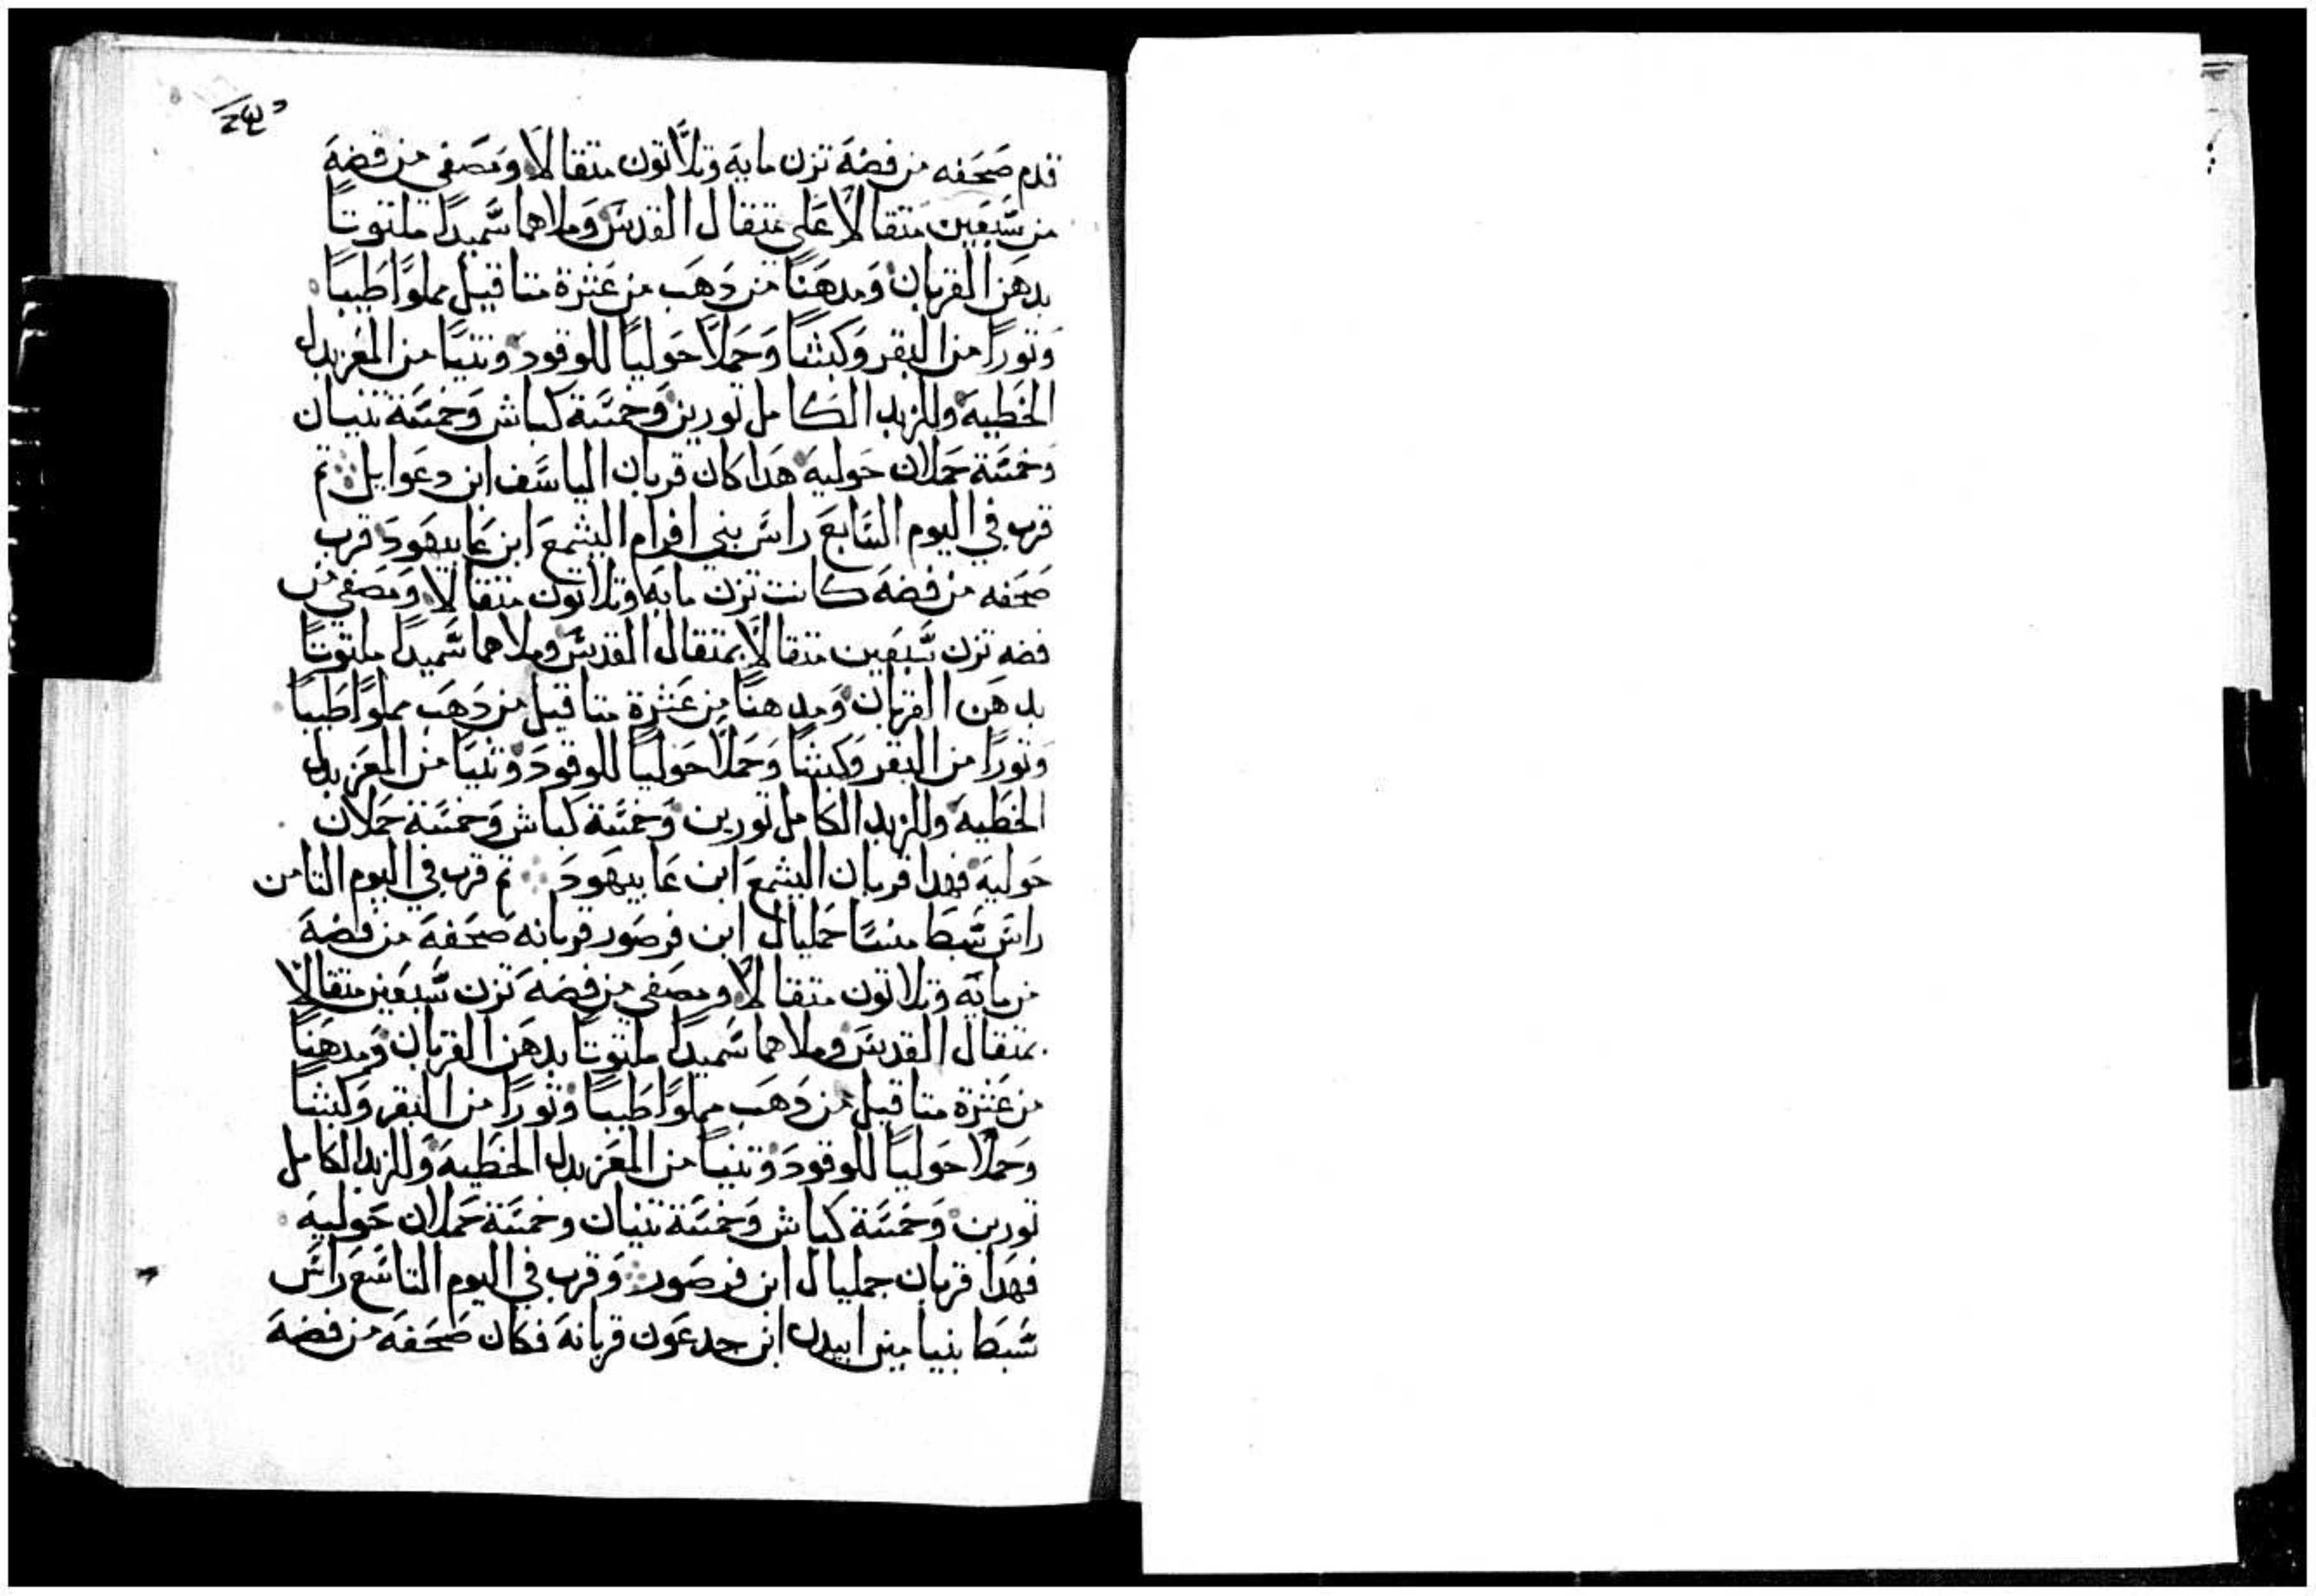 قدم صَحَفه من فضة تزن مايه وتلاتون متقالا ومصفى من فضة
من سبعين متقالا على متقال القدس وملاهما سميدا ملتوتا
بدهن القربان ومدهنا من دهب من عشرة متاقيل مملوا طيبا
وتورا من البقر وكبشا وحملا حوليا للوقود وتنيا من المعز بدل
الخطية وللزبد الكامل تورين وخمسة كباش وخمسة تنيان
وخمسة حملان حوليه هدا كان قربان الياسف ابن دعوايل تم
قرب في اليوم السابع راس بني افرام اليشمع ابن عابيهود قرب
صحفه من فضه كانت تزن مايه وتلاتون متقالا ومصفى من
فضه تزن سبعين متقالا بمتقال القدس وملاهما سميدا ملتوتا
بدهن القربان ومدهنا من عشرة متاقيل من دهب مملوا طيبا
وتورا من البقر وكبشا وحملا حوليا للوقود وتنيا من المعز بدل
الخطية وللزبد الكامل تورين وخمسة كباش وخمسة حملان
حوليه فهدا قربان اليشمع ابن عابيهود تم قرب في اليوم التامن
راس سبط منسا حمليال ابن فرصور قربانه صحفه من فضة
من مايه وتلاتون متقالا ومصفى من فضه تزن سبعين متقالا
بمتقال القدس وملاهما سميدا ملتوتا بدهن القربان ومدهنا
من عشرة متاقيل من دهب مملوا طيبا وتورا من البقر وكبشا
وحملا حوليا للوقود وتنيا من المعز بدل الخطيه وللزبد الكامل
تورين وخمسة كباش وخمسة تنيان وخمسة حملان حوليه
فهدا قربان جمليال ابن فرصور وقرب في اليوم التاسع راس
سبط بنيامين ابيدن ابن جدعون قربانه فكان صحفه من فضة